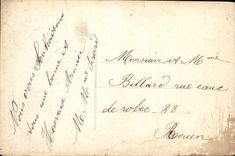 Nous vous souhaitons
tous une bonne et
Heureuse Année
M. Mme
Monsieur et Mme
Billard rue eau
de robec 88
Rouen